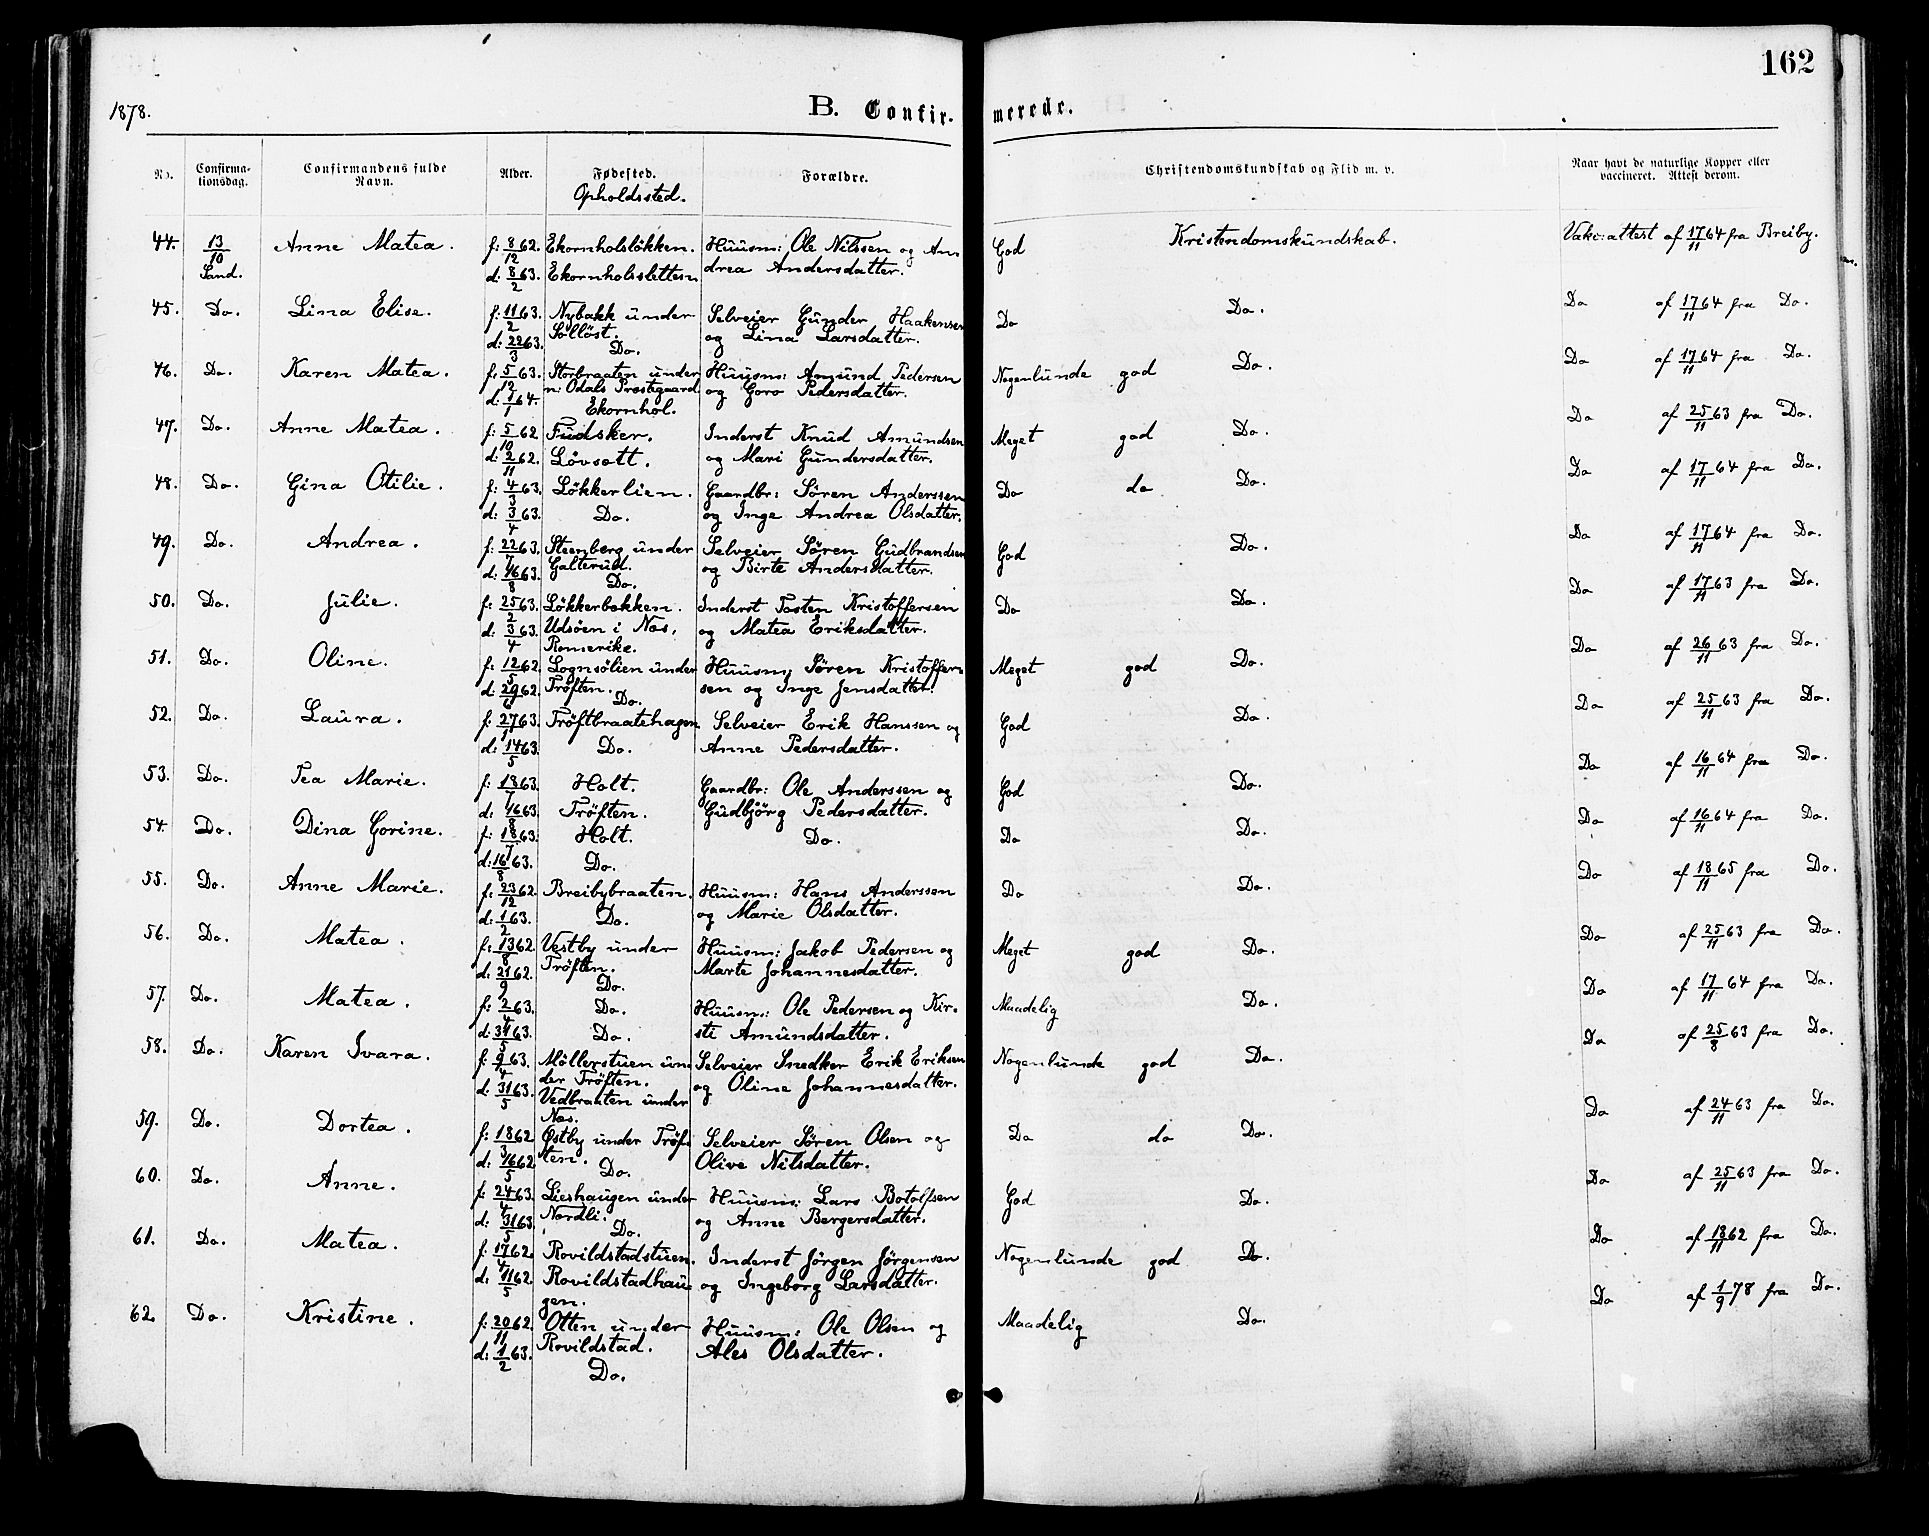 162
1878.
B. Confir-
merede.
No.
Confirma-
tionsdag.
Confirmandens fulde
Navn.
Alder.
Fødested.
Opholdssted.
Forældre.
Christendomskundskab og Flid m. v.
Naar havt de naturlige Kopper eller
vaccineret. Attest derom.
44. 13/10 Anne Matea. f: 8/12 62. Ekornholsløkken. Huusm: Ole Nilssen og An- God Kristendomskundskab. Vakc: attest af 17/11 64 fra Breiby.
Sand. d: 8/2 63. Ekornholssletten drea Andersdatter.
45. Do. Lina Elise. f: 11/2 63. Nybakk under Selveier Gunder Haakensen Do Do. Do af 17/11 64 fra Do.
d: 22/3 63. Solløst. og Lina Larsdatter.
Do.
46. Do. Karen Matea. f: 5/12 63. Storbraaten under Huusm: Amund Pedersen Nogenlunde god Do. Do af 17/11 64 fra Do.
d: 1/1 64. n: Odals Prostegaard og Goro Pedersdatter.
Ekornhol.
47. Do. Anne Matea. f: 5/10 62 Fudsker. Inderst Knud Amundsen Meget god Do. Do af 25/11 63 fra Do.
d: 2/11 62. Løvsett. og Mari Gundersdatter.
48. Do. Gina Otilie. f: 4/3 63. Løkkerlien. Gaardbr: Søren Anderssen Do do Do. Do af 17/11 64 fra Do.
d: 3/4 63. Do. og Inge Andrea Olsdatter.
49. Do. Andrea. f: 22/7 63. Steenberg under Selveier Søren Gudbrandsen God Do. Do af 17/11 64 fra Do.
d: 16/8 63. Galterud. og Birte Andersdatter.
Do.
50. Do. Julie. f: 25/2 63. Løkkerbakken. Inderst Tosten Kristoffersen Do Do. Do af 17/11 63 fra Do.
d: 3/4 63. Udsøen i Nas, og Matea Eriksdatter.
Romerike.
51. Do. Oline. f: 12/5 62. Lognsølien under Huusm: Søren Kristoffer- Meget god Do. Do af 26/11 63 fra Do.
d: 29/6 62. Trøften. sen og Inge Jensdatter.
Do.
52. Do. Laura. f: 27/1 63. Trøftbraatehagen Selveier Erik Hanssen og God Do. Do af 25/11 63 fra Do.
d: 14/5 63. Do. Anne Pedersdatter.
53. Do. Tea Marie. f: 18/7 63. Holt. Gaardbr: Ole Anderssen og God Do. Do af 16/11 64 fra Do.
d: 16/8 63. Trøften. Gudbjørg Pedersdatter.
54. Do. Dina Gorine. f: 18/7 63. Holt. Do. Do Do. Do af 16/11 64 fra Do.
d: 16/8 63. Do.
55. Do. Anne Marie. f: 23/12 62. Breibybraaten. Huusm: Hans Anderssen Do Do. Do af 18/11 65 fra Do.
d: 1/2 63. Do. og Marie Olsdatter.
56. Do. Matea. f: 13/8 62. Vestby under Huusm: Jakob Pedersen og Meget god Do. Do af 25/11 63 fra Do.
d: 21/9 62. Trøften. Marte Johannesdatter.
Do.
57. Do. Matea. f: 2/4 63. Do. Huusm: Ole Pedersen og Kir- Maadelig Do. Do af 17/11 64 fra Do.
d: 31/5 63. Do. sti Amundsdatter.
58. Do. Karen Ivara. f: 9/4 63. Møllerstuen un- Selveier Snedker Erik Eriksen Nogenlunde god Do. Do af 25/8 63 fra Do.
d: 31/5 63. der Trøften. og Oline Johannesdatter.
Vedbraaten under
Nas.
59. Do. Dortea. f: 18/3 62 Østby under Trøf- Selveier Søren Olsen og Do do Do. Do af 24/11 63 fra Do.
d: 16/5 62 ten. Do. Olive Nilsdatter.
60. Do. Anne. f: 24/4 63. Lieshaugen under Huusm: Lars Botolfsen God Do. Do af 25/11 63 fra Do.
d: 31/5 63 Nordli. og Anne Bergersdatter.
Do.
61. Do. Matea. f: 17/4 62. Rovildstadstuen. Inderst Jørgen Jørgensen Nogenlunde god Do. Do af 18/11 62 fra Do.
d: 11/5 62. Rovildstadhau- og Ingeborg Larsdatter.
gen.
62. Do. Kristine. f: 20/11 62. Otten under Huusm: Ole Olsen og Maadelig Do. Do af 1/9 78 fra Do.
d: 1/2 63. Rovildstad. Ales Olsdatter.
Do.